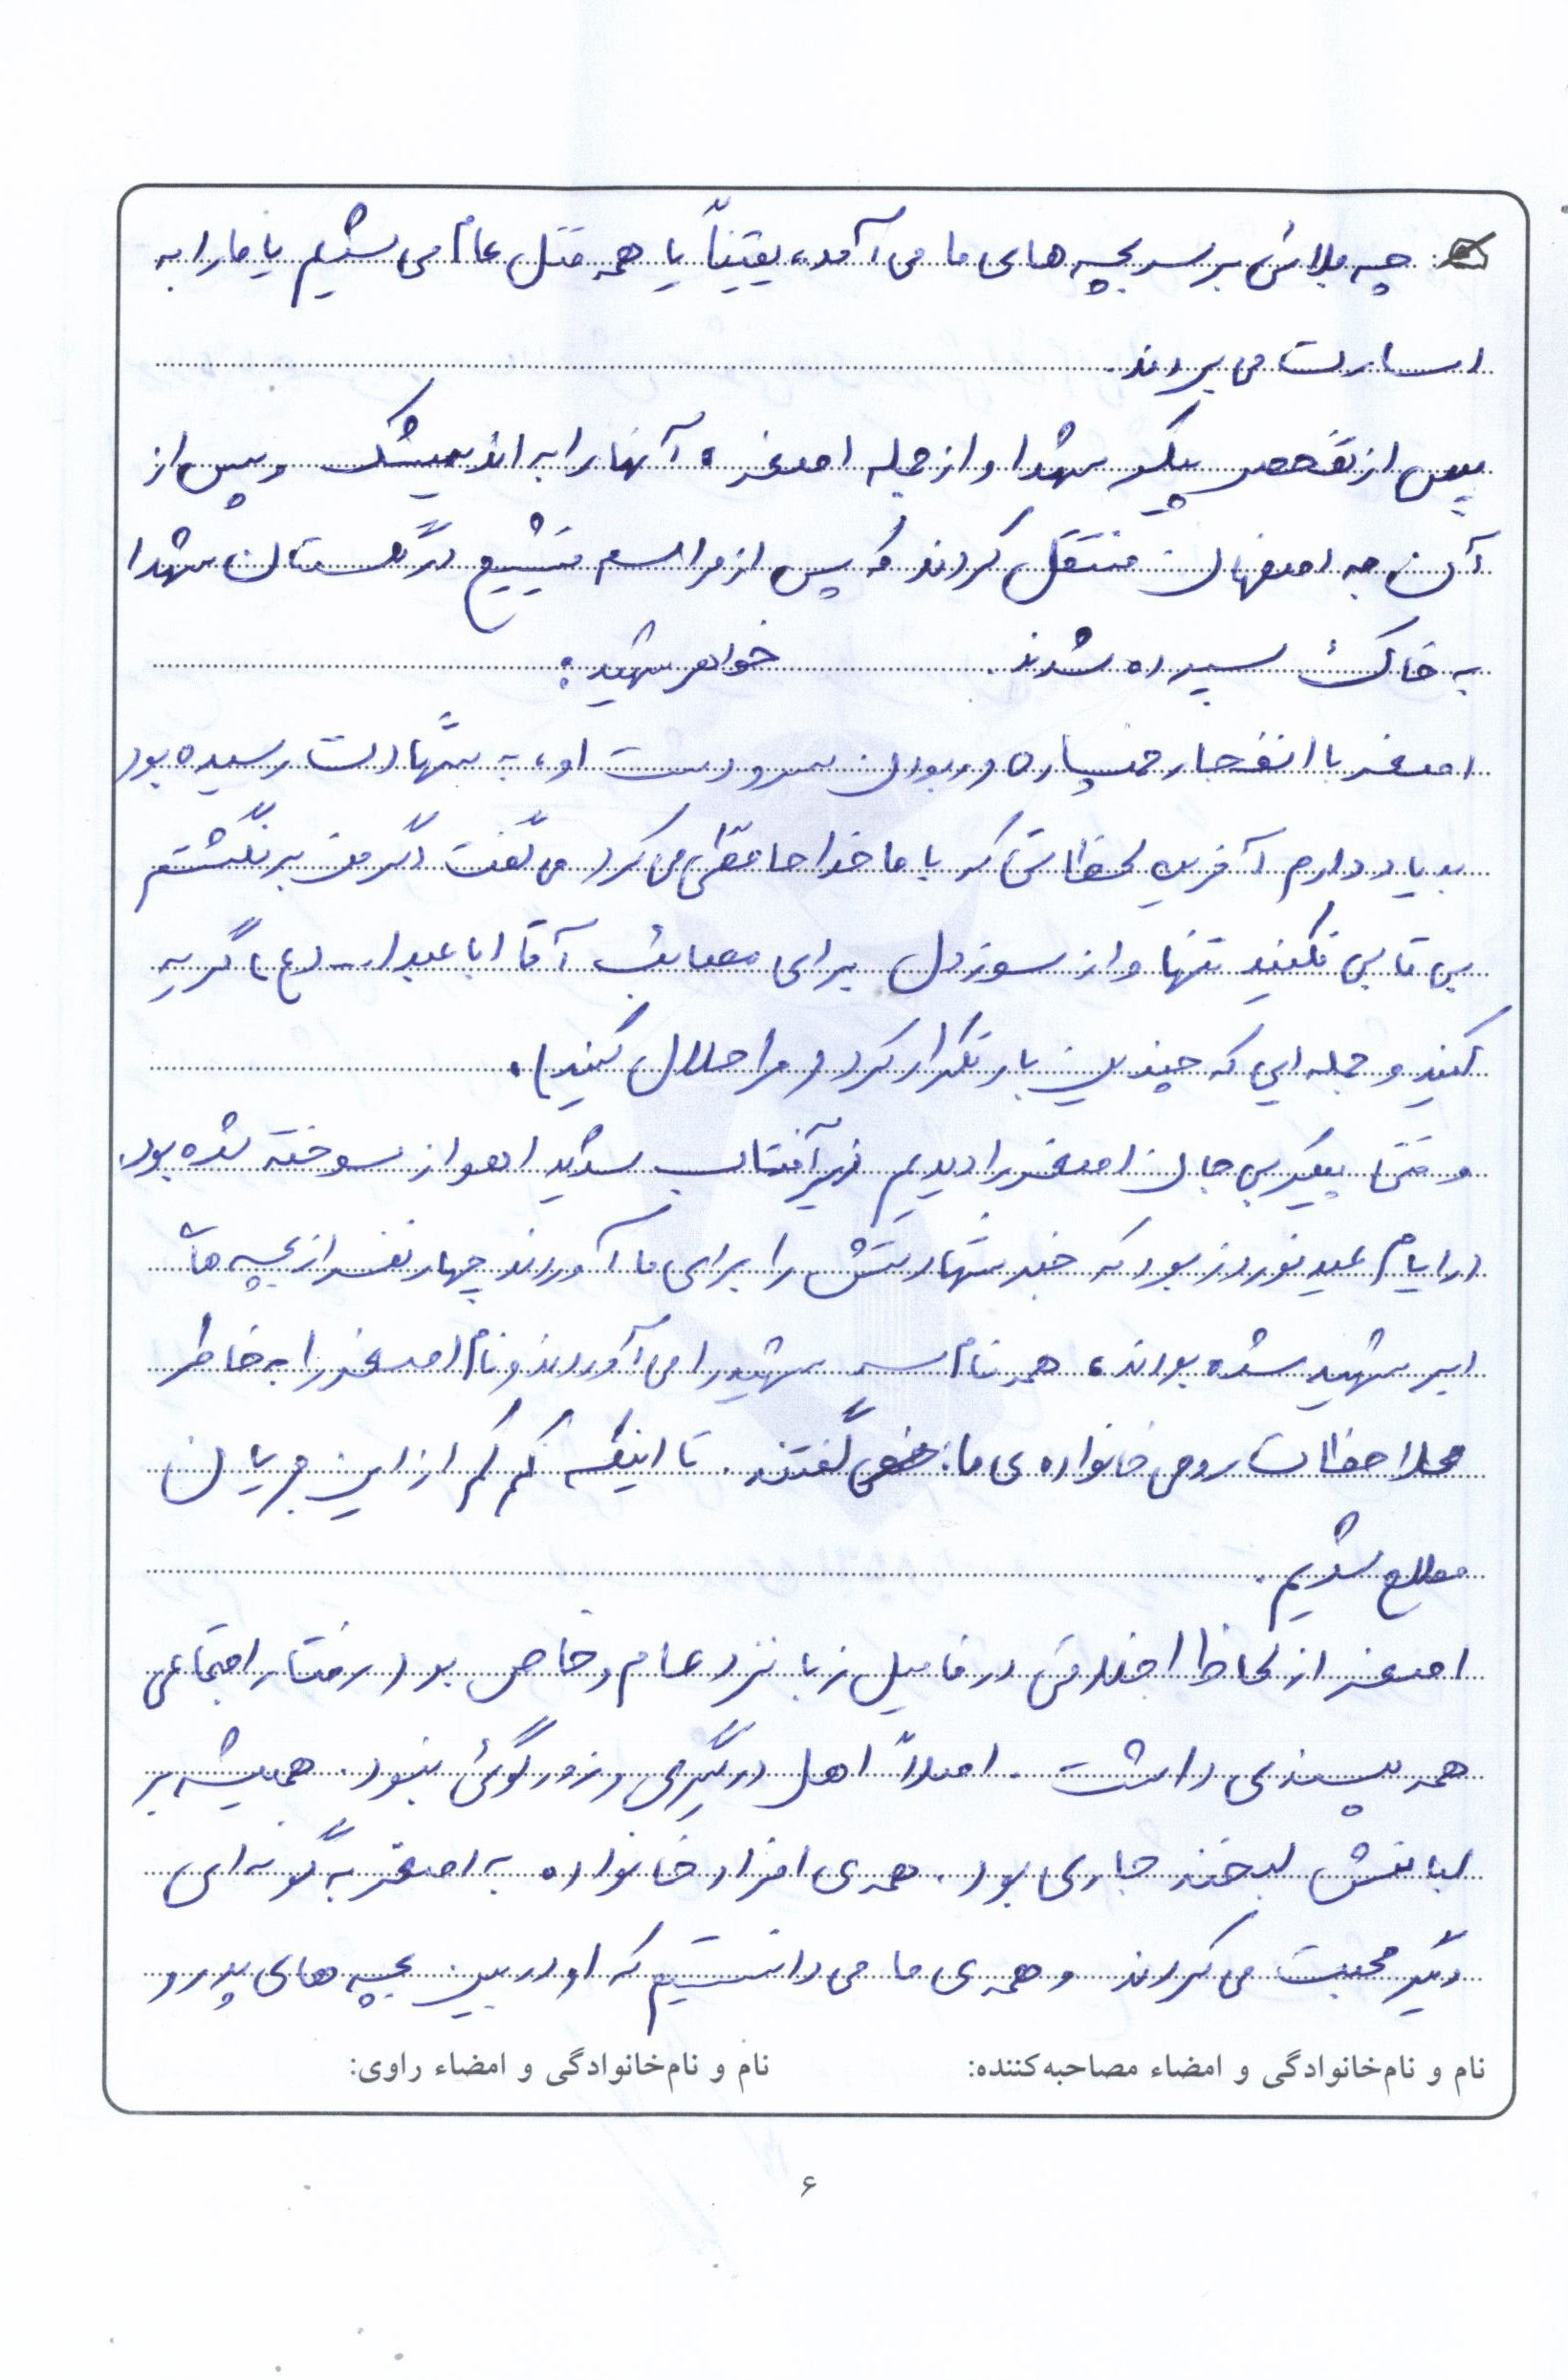 چه بلائی بر سر بچه های ما می آمد، یقیناً یا همه قتل عام می شدیم یا ما را به
اسارت می بردند.
پس از تفحص پیکر شهدا و از جمله اصغر، آنها را به اندیمشک و پس از
آن به اصفهان منتقل کردند که پس از مراسم تشییع در گلستان شهدا
به خاک سپرده شدند. خواهر شهید:
اصغر با انفجار خمپاره و ربودن سر و دست او، به شهادت رسیده بود
به یاد دارم آخرین لحظاتی که با ما خداحافظی می کرد می گفت اگر من برنگشتم
بی تابی نکنید تنها و از سوز دل برای مصائب آقا ابا عبدا... (ع) گریه
کنید و جمله ایی که چندین بار تکرار کرد (مرا حلال کنید).
وقتی پیکر بی جان اصغر را دیدیم زیر آفتاب شدید اهواز سوخته شده بود.
در ایام عید نوروز بود که خبر شهادتش را برای ما آوردند چهار نفر از بچه های
ابر شهید شده بودند، همه نام سه شهید را می آوردند و نام اصغر را به خاطر
ملاحظات روحی خانواده ی ما نمی گفتند. تا اینکه کم کم از این جریان
مطلع شدیم.
اصغر از لحاظ اخلاقی در فامیل زبانزد عام و خاص بود رفتار اجتماعی
همه پسندی داشت. اصلاً اهل درگیری و زورگوئی نبود. همیشه بر
لبانش لبخند جاری بود. همه ی افراد خانواده به اصغر به گونه ای
دیگر محبت می کردند و همه ی ما می دانستیم که او در بین بچه های پدر و
نام و نام‌خانوادگی و امضاء مصاحبه‌کننده: نام و نام‌خانوادگی و امضاء راوی:
۶